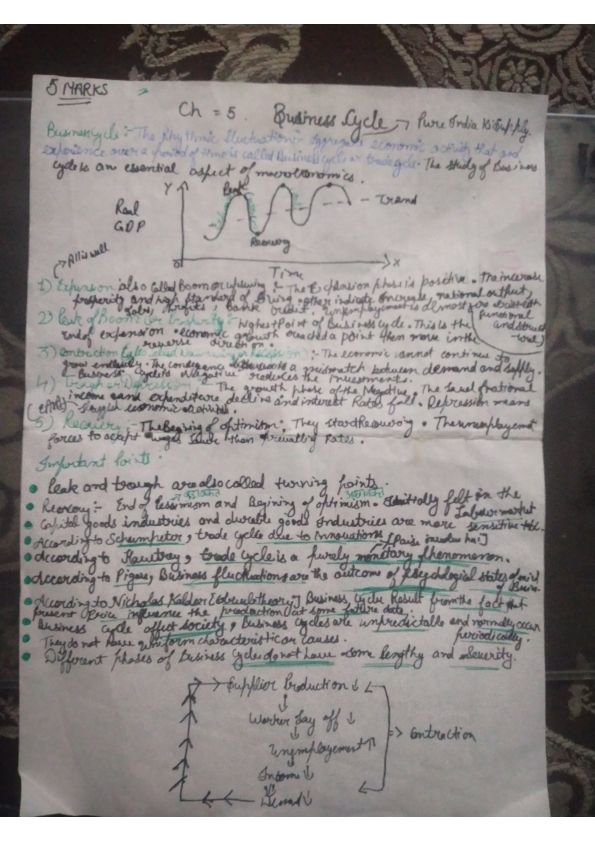 5 MARKS
Ch = 5 Business Cycle → Pure India ki Supply.
Business cycle :- The Rhythmic fluctuation in aggregate economic activity that and
experience over a period of time is called Business cycle or trade cycle. The study of Business
cycle is an essential aspect of macroeconomics.
Y
Peak
Trend
Real
GDP
Recovery
0
X
Time
All is well
1) Expansion also called Boom or upswing :- The Explasion phase is positive. The increase
prosperity and high standard of living. national output,
Jobs, Profits, bank credit. unemployment is almost
functional
and struct
ural)
2) Peak of Boom or Prosperity :- Highest Point of Business cycle. This is the
end of expansion. economic growth reached a point then move in the
reverse direction.
3) contraction :- The economic cannot continue to
grow endlessly. a mismatch between demand and supply.
Business cycle is negative reduces the Investments.
4) Trough or Depression :- The growth phase of the Negative. The level of national
income and expenditure decline and interest Rates fall. Depression means
economic activities.
5) Recovery :- The Begining of optimism. They start Recovering. The unemployment
forces to accept wages lower than prevailing Rates.
Important Points.
Peak and trough are also called turning points.
Recovery :- End of Pessimism and Begining of optimism. Initially felt in the
Labour market
Capital goods industries and durable goods Industries are more sensitive
According to Schumpeter, trade cycle due to Innovations
According to Hawtrey, trade cycle is a purely monetary phenomenon.
According to Pigou, Business fluctuations are the outcome of Psychological states of mind
of Busine
According to Nicholas Kaldor [cobweb theory] Business cycle Result from the fact that
present Price influence the production at some future date.
Business cycle effect society, Business cycles are unpredictable and normally occur
periodically.
They do not have uniform characteristic or causes.
Different phases of Business cycle do not have same lengthy and severity.
Supplier Production ↓
Worker Lay off ↓
Unemployement ↑
Income ↓
Demad ↓
=> Contraction